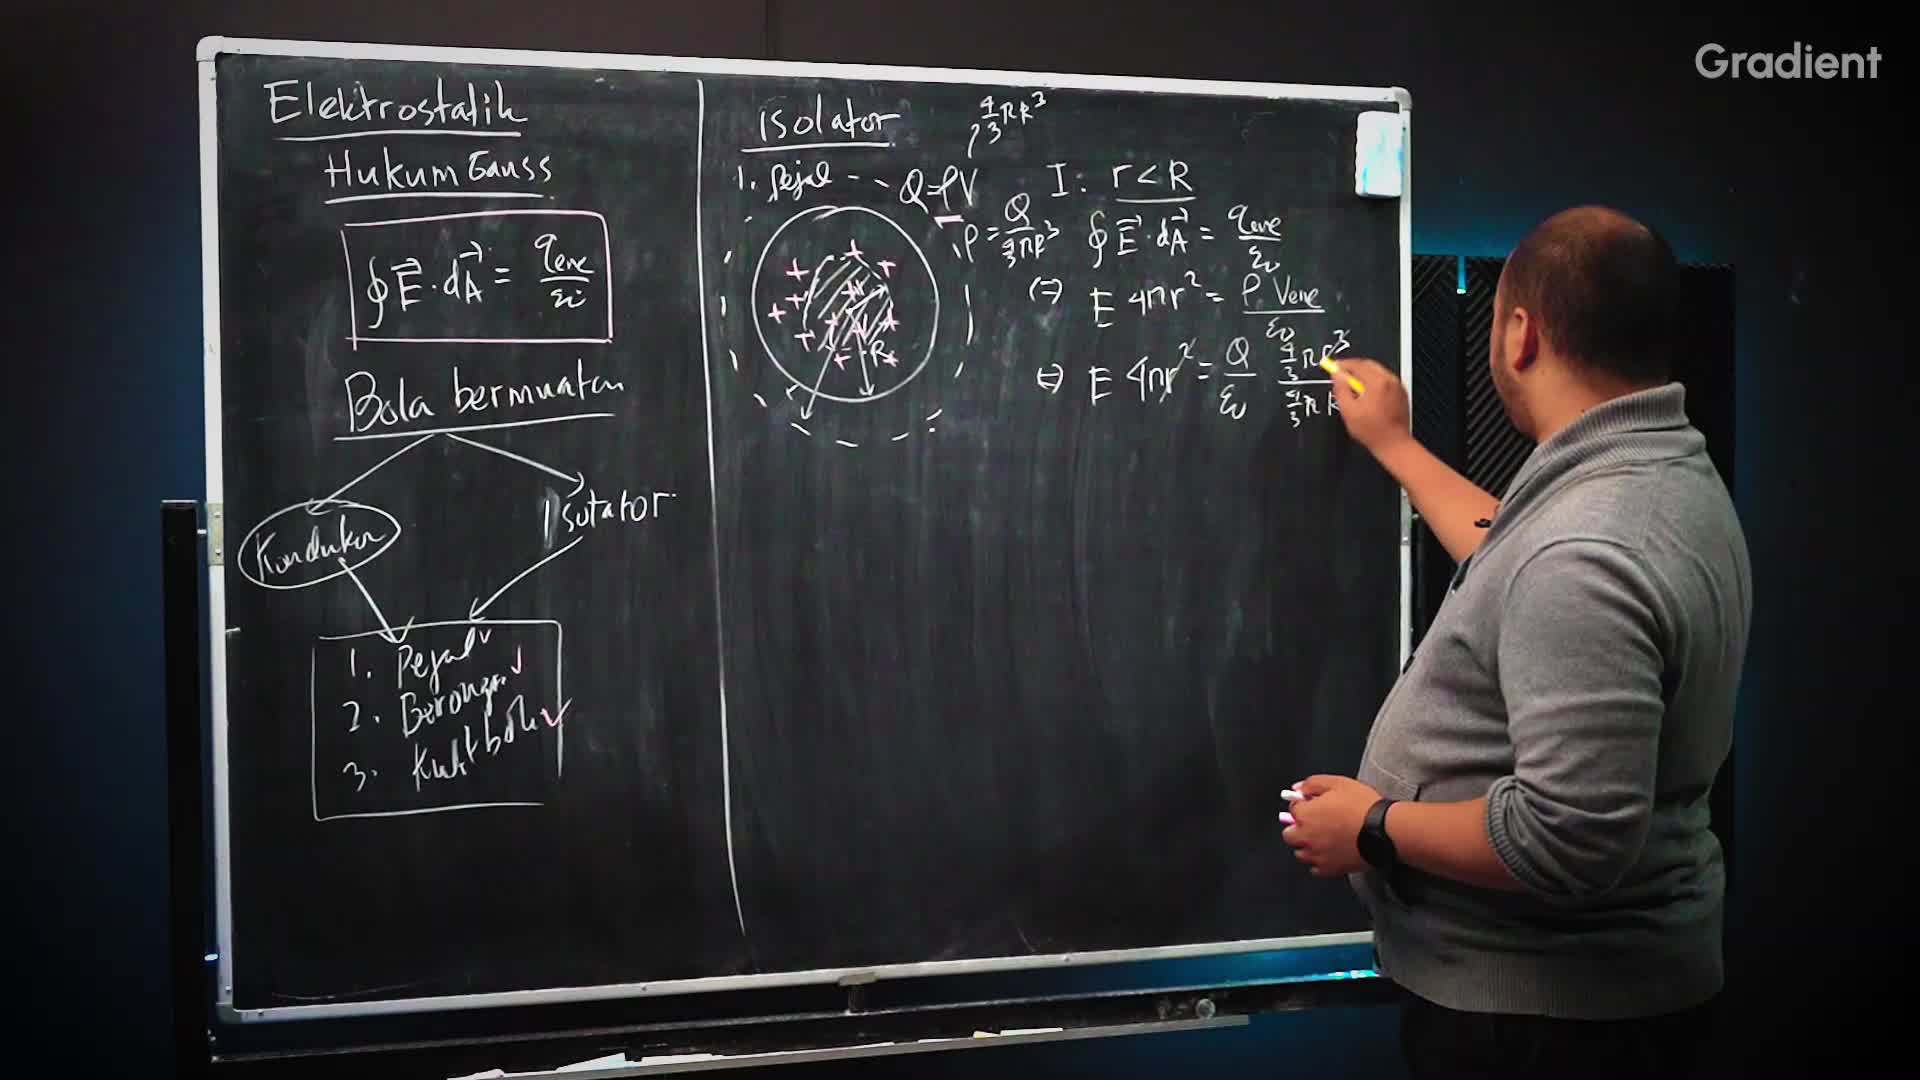 Gradient
Elektrostatik
Hukum Gauss
∮ E⃗ · dA⃗ = qenc / ε₀
Bola bermuatan
Konduktor
Isolator
1. Pejal ✓
2. Berongga ✓
3. Kulit bola ✓
isolator
4/3 πR³
1. Pejal -- Q = ρV
ρ = Q / 4/3 πR³
r
R
I. r < R
∮ E⃗ · dA⃗ = qenc / ε₀
⇔ E 4πr² = ρ Venc / ε₀
⇔ E 4πr² = Q / ε₀ 4/3 πr³ / 4/3 πR